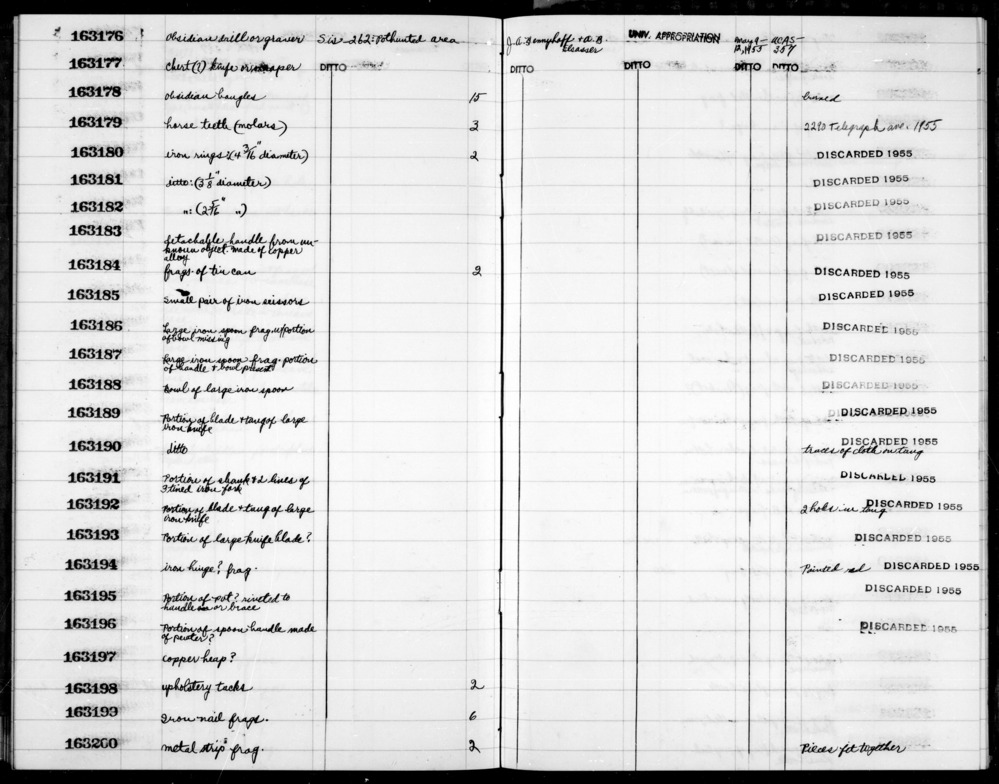 163176 obsidian drill or graver Sis-262: Pothunted area J.A. Bennyhoff + A.B. Elsasser UNIV. APPROPRIATION May 9-12, 1955 UCAS-257
163177 chert(?) knife or scraper DITTO DITTO DITTO DITTO DITTO
163178 obsidian bangles 15 burned
163179 horse teeth (molars) 3 2290 Telegraph ave. 1955
163180 iron rings: (4 3/16" diameter) 2 DISCARDED 1955
163181 ditto: (3 1/8" diameter) DISCARDED 1955
163182 ": (2 5/16" ") DISCARDED 1955
163183 detachable handle from un-
known object made of copper
alloy DISCARDED 1955
163184 frags. of tin can 2 DISCARDED 1955
163185 Small pair of iron scissors DISCARDED 1955
163186 Large iron spoon frag. w/portion
of bowl missing DISCARDED 1955
163187 large iron spoon frag. portion
of handle + bowl present DISCARDED 1955
163188 Bowl of large iron spoon DISCARDED 1955
163189 Portion of blade + tang of large
iron knife DISCARDED 1955
163190 ditto DISCARDED 1955
traces of cloth on tang
163191 Portion of shank + 2 tines of
3 tined iron fork DISCARDED 1955
163192 Portion of blade + tang of large
iron knife 2 holes in tang DISCARDED 1955
163193 Portion of large knife blade? DISCARDED 1955
163194 iron hinge? frag. Painted red DISCARDED 1955
163195 Portion of pot? riveted to
handle or brace DISCARDED 1955
163196 Portion of spoon handle made
of pewter? DISCARDED 1955
163197 copper hasp?
163198 upholstery tacks 2
163199 Iron nail frags. 6
163200 metal strip frag. 2 Pieces fit together